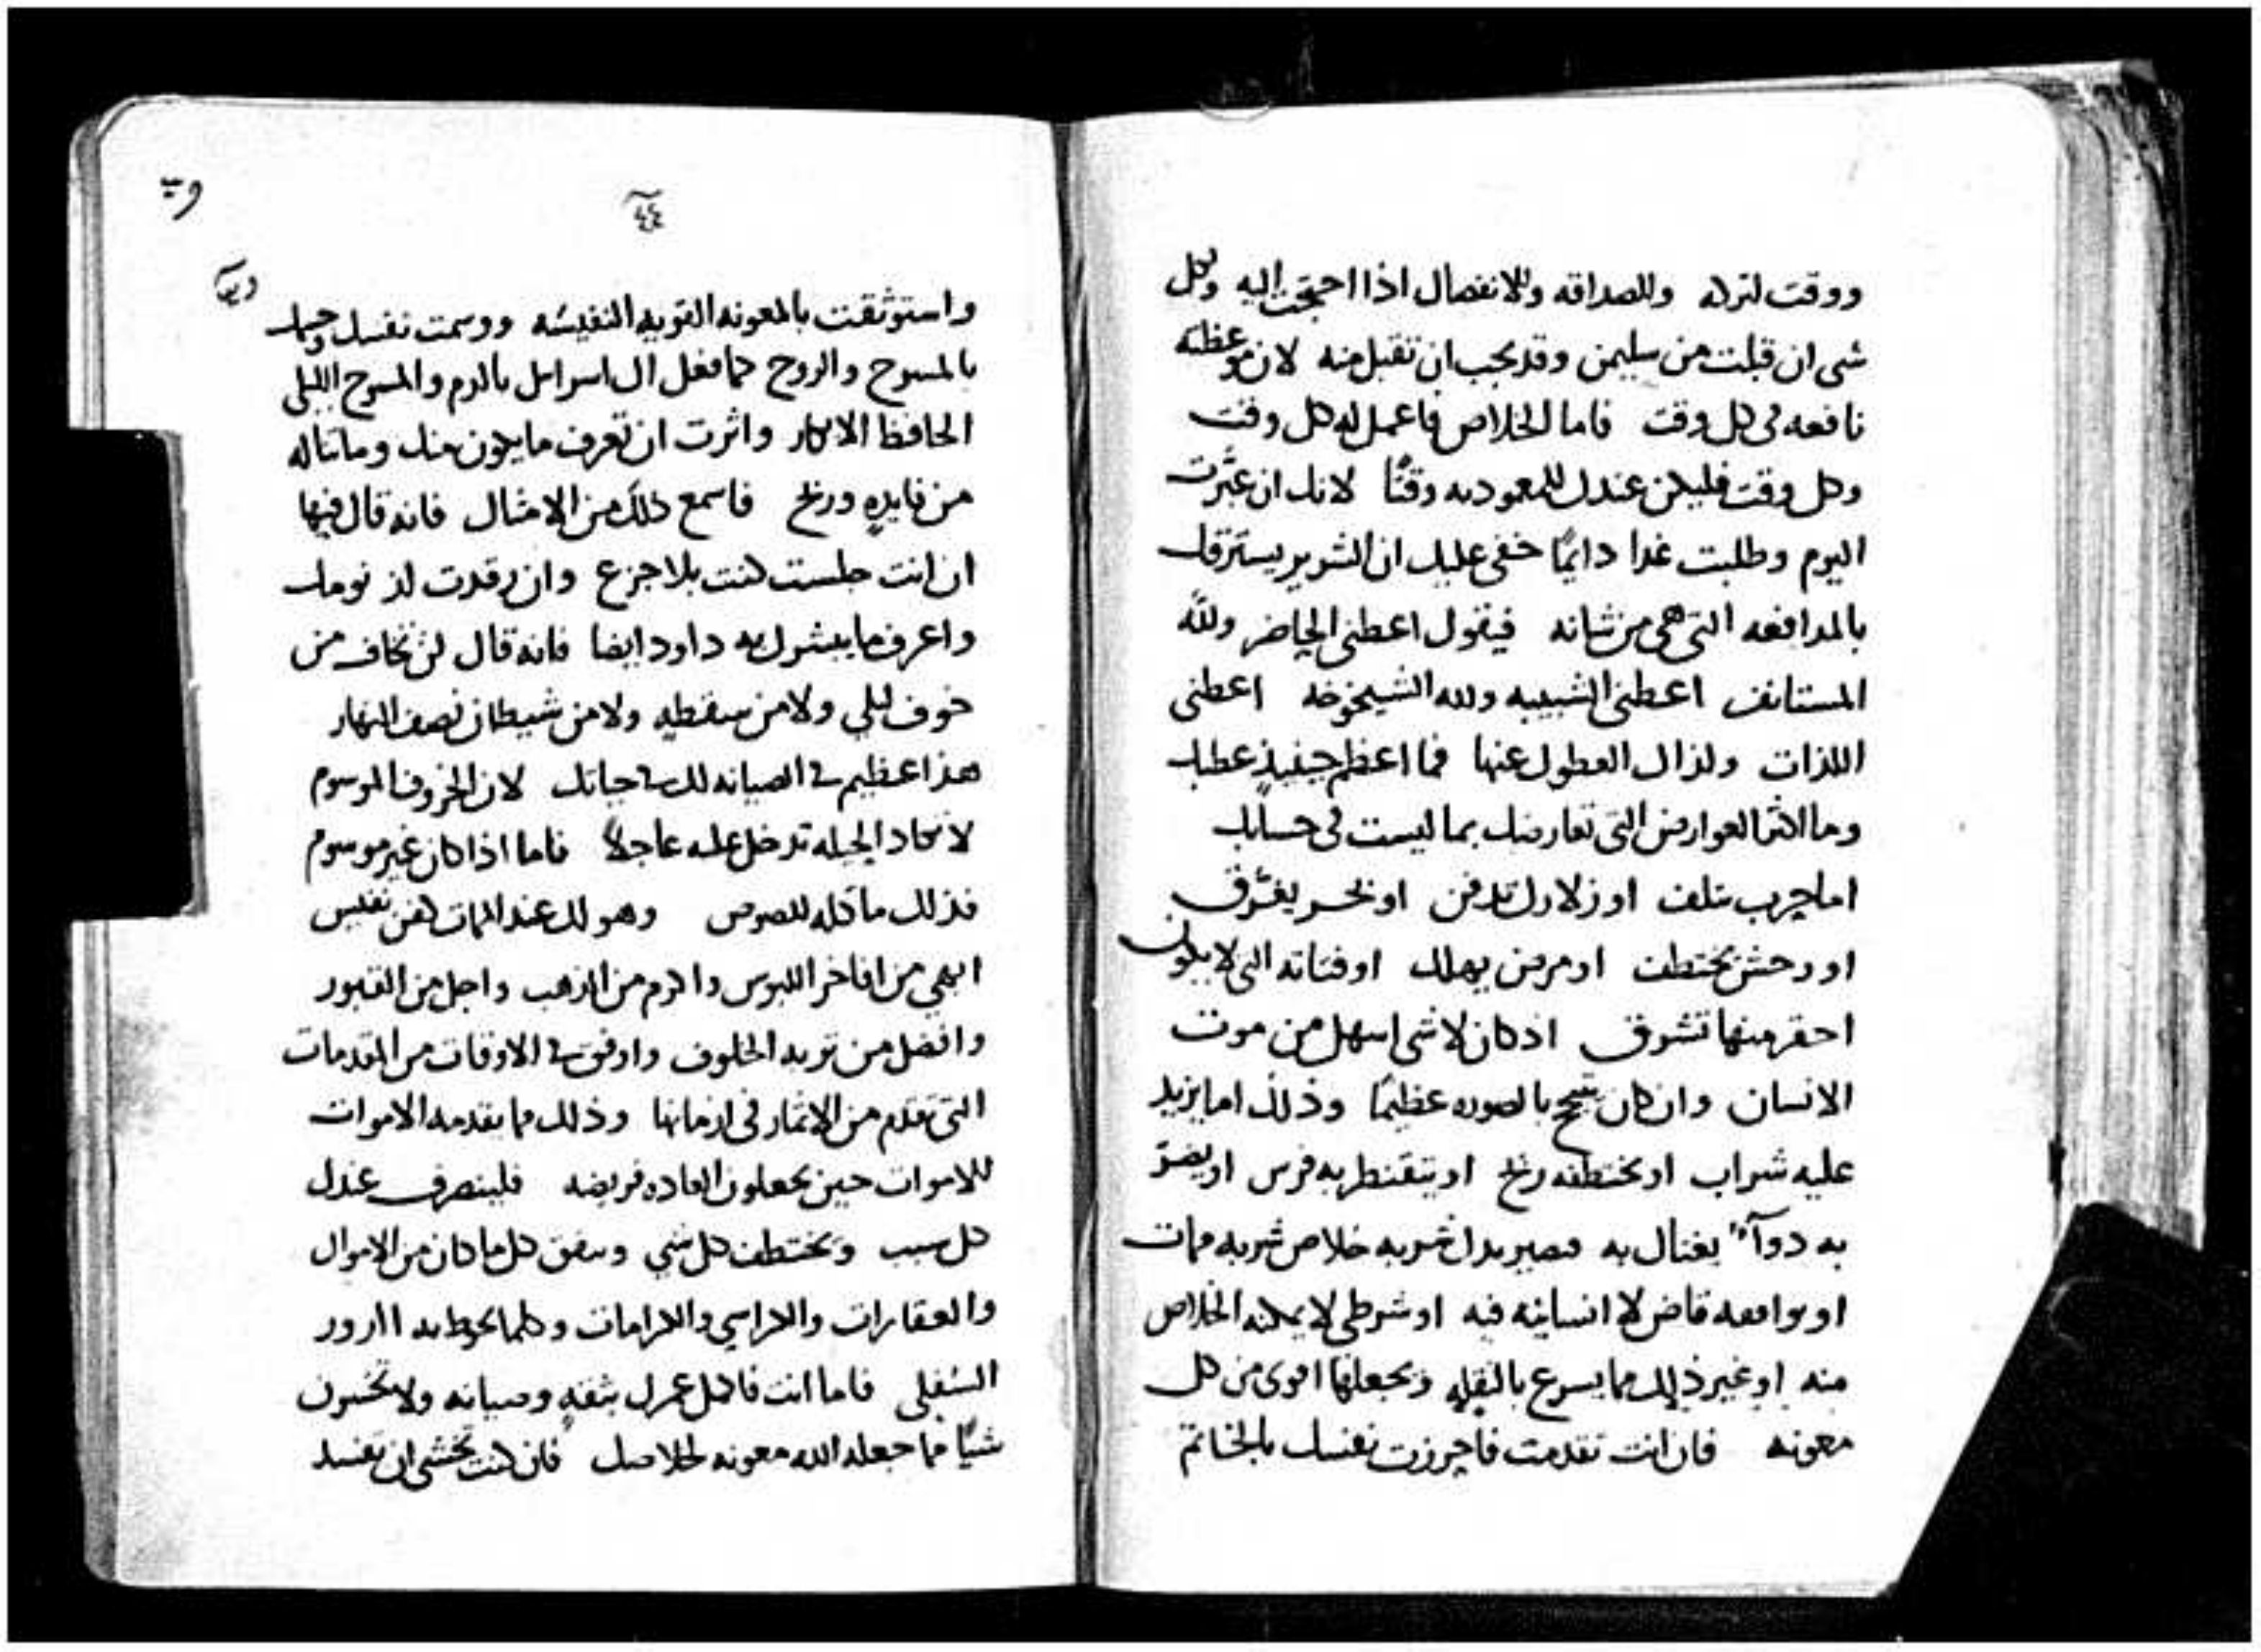 ووقت لتركه وللصداقه وللانفصال اذا احتجت اليه ولكل
شى ان قبلت من سليمن وقد يجب ان تقبل منه لان موعظته
نافعه فى كل وقت فاما الخلاص فاعمل له كل وقت
وكل وقت فليكن عندك للمعوديه وقتًا لانك ان عبّرت
اليوم وطلبت غدا دايمًا خفى عليك ان الشرير يسترقك
بالمدافعه التى هى من شانه فيقول اعطنى الحاضر ولله
المستانف اعطنى الشبيبه ولله الشيخوخه اعطنى
اللذات ولذاك العطول عنها فما اعظم حينيذ عطبك
وما اكثر العوارض التى تعارضك بما ليست فى حسابك
اما حرب تتلف او زلازل تدفن او بحر يغرّق
او وحش يختطف او مرض يهلك او فتاته التى لا يكون
احقر منها تشرق اذ كان لا شى اسهل من موت
الانسان وان كان تبجح بالصوره عظيمًا وذلك اما يزيد
عليه شراب او تختطفه ريح او يتقنطر به فرس او يضرّ
به دوآء يغتال به فيصير بدل شربه خلاص شربه ممات
او يوافعه قاض لا انسانيه فيه او شرطى لا يمكنه الخلاص
منه او غير ذلك مما يسرع بالنقله ويجعلها اقوى من كل
معونه فان انت تقدمت فاحرزت نفسك بالخاتم
٤٤
واستوثقت بالمعونه القويه النفيسه ووسمت نفسك وجسمك
بالمسوح والروح كما فعل ال اسرايل بالدم والمسوح الليلى
الحافظ الابكار واثرت ان تعرف ما يكون منك وما تناله
من فايدهٍ وربح فاسمع ذلك من الامثال فانه قال فيها
ان انت جلست كنت بلا جزع وان رقدت لذ نومك
واعرف ما يبشرك به داود ايضا فانه قال لن تخاف من
خوف ليلي ولا من سقطهٍ ولا من شيطان نصف النهار
هذا عظيم فى الصيانه لك فى حياتك لان الخروف الموسوم
لا تكاد الحيله تدخل عليه عاجلًا فاما اذا كان غير موسوم
فذلك ماكله للصوص وهو لك عند الممات كفن نفيس
ابهى من افاخر اللبوس واكرم من الذهب واجل من القبور
وافضل من تربه الخلوف واوفق فى الاوقات من المقدمات
التى تقدم من الاثمار فى ازمانها وذلك مما يقدمه الاموات
للاموات حين يجعلون العاده فريضه فلينصرف عندك
كل سبب ويختطف كل شي وينفق كل ما كان من الاموال
والعقارات والكراسي والكرامات وكلما يحوط به الدور
السفلى فاما انت فاكمل عمرك بثقهٍ وصيانه ولا تخسرن
شيًا مما جعله الله معونه لخلاصك فان كنت تخشى ان تفسد